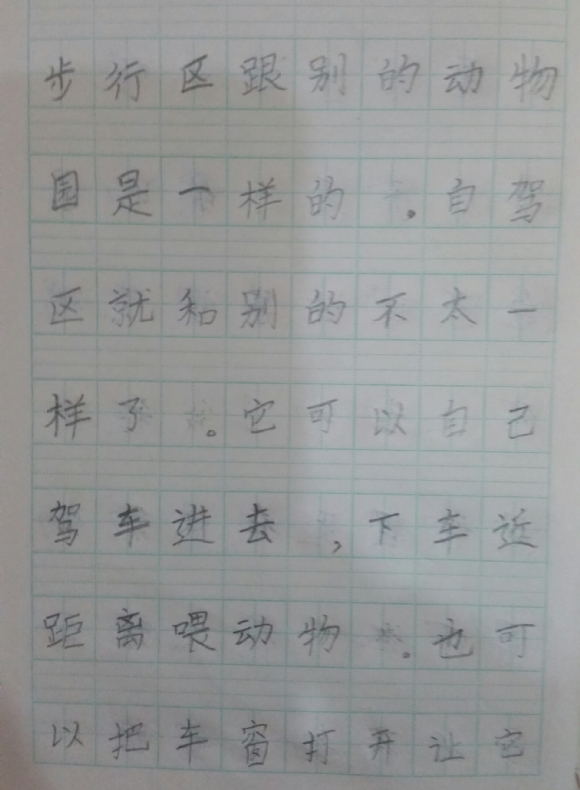 步行区跟别的动物
园是一样的。自驾
区就和别的不太一
样了。它可以自己
驾车进去,下车近
距离喂动物。也可
以把车窗打开让它